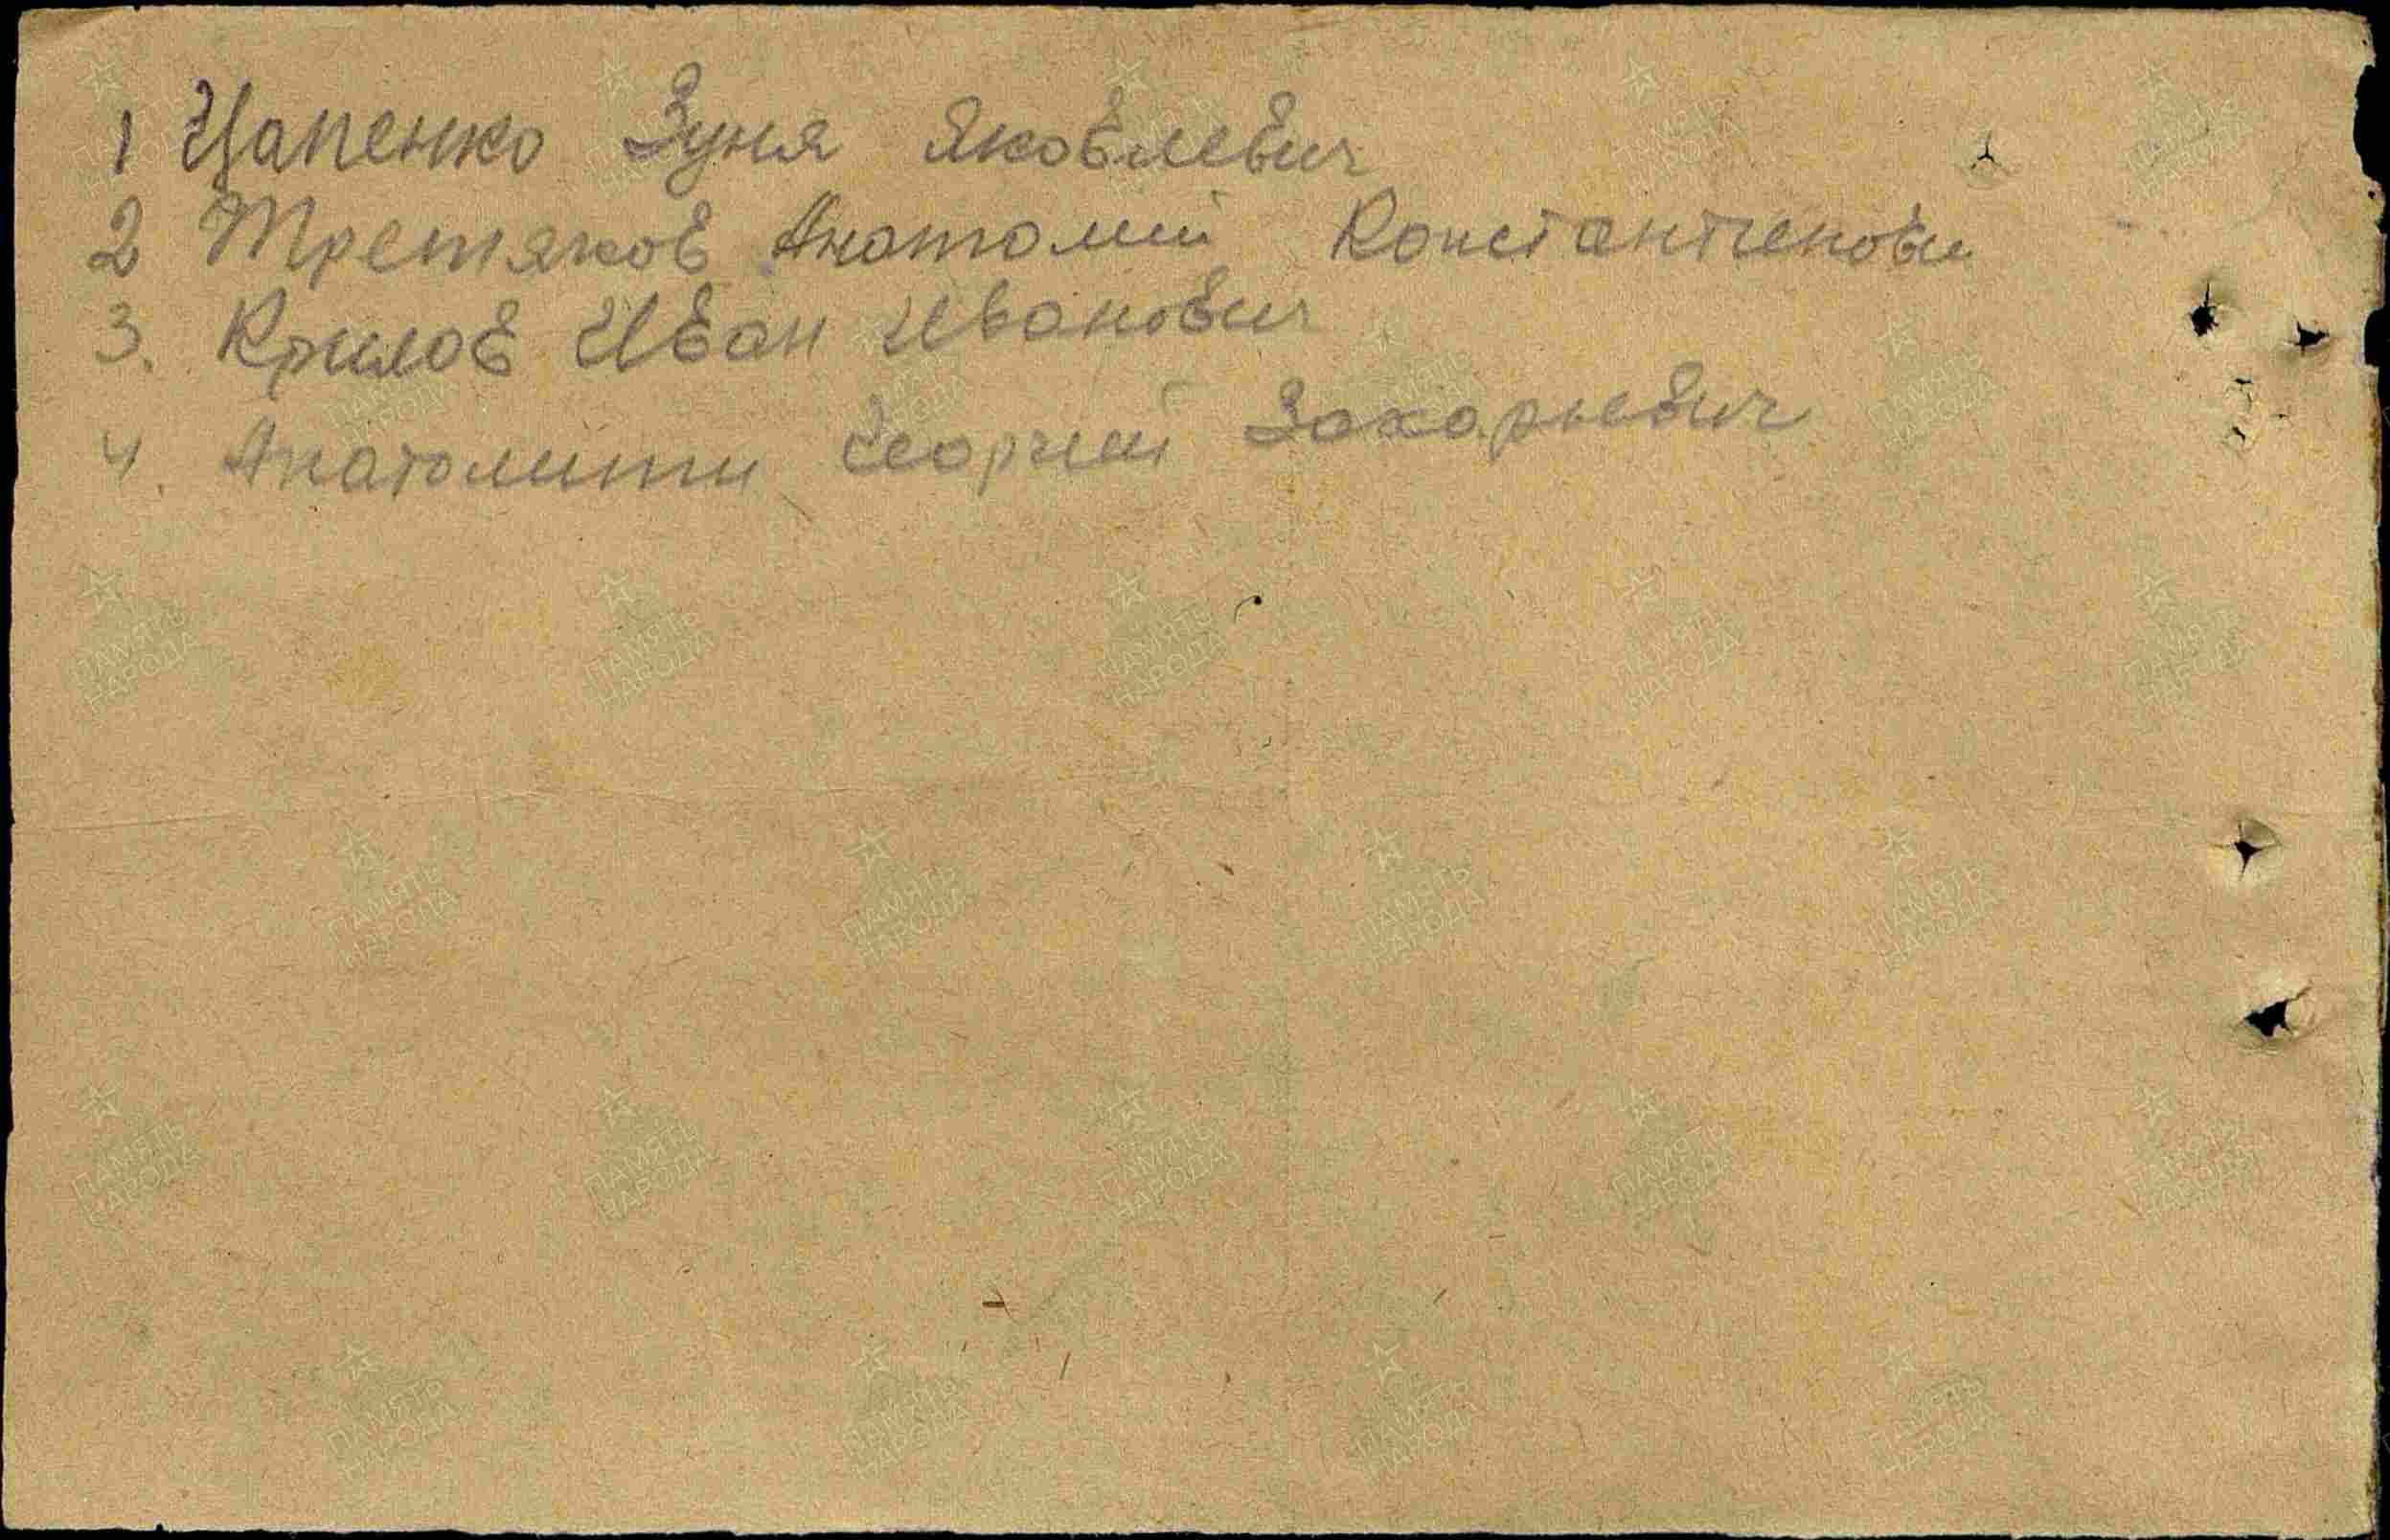 1 Цапенко Зуня Яковлевич
2 Третяков Анатолий Константинови
3. Крилов Иван Иванович
4. Анатолити Георгий Захарьевич
ПАМЯТЬ НАРОДА